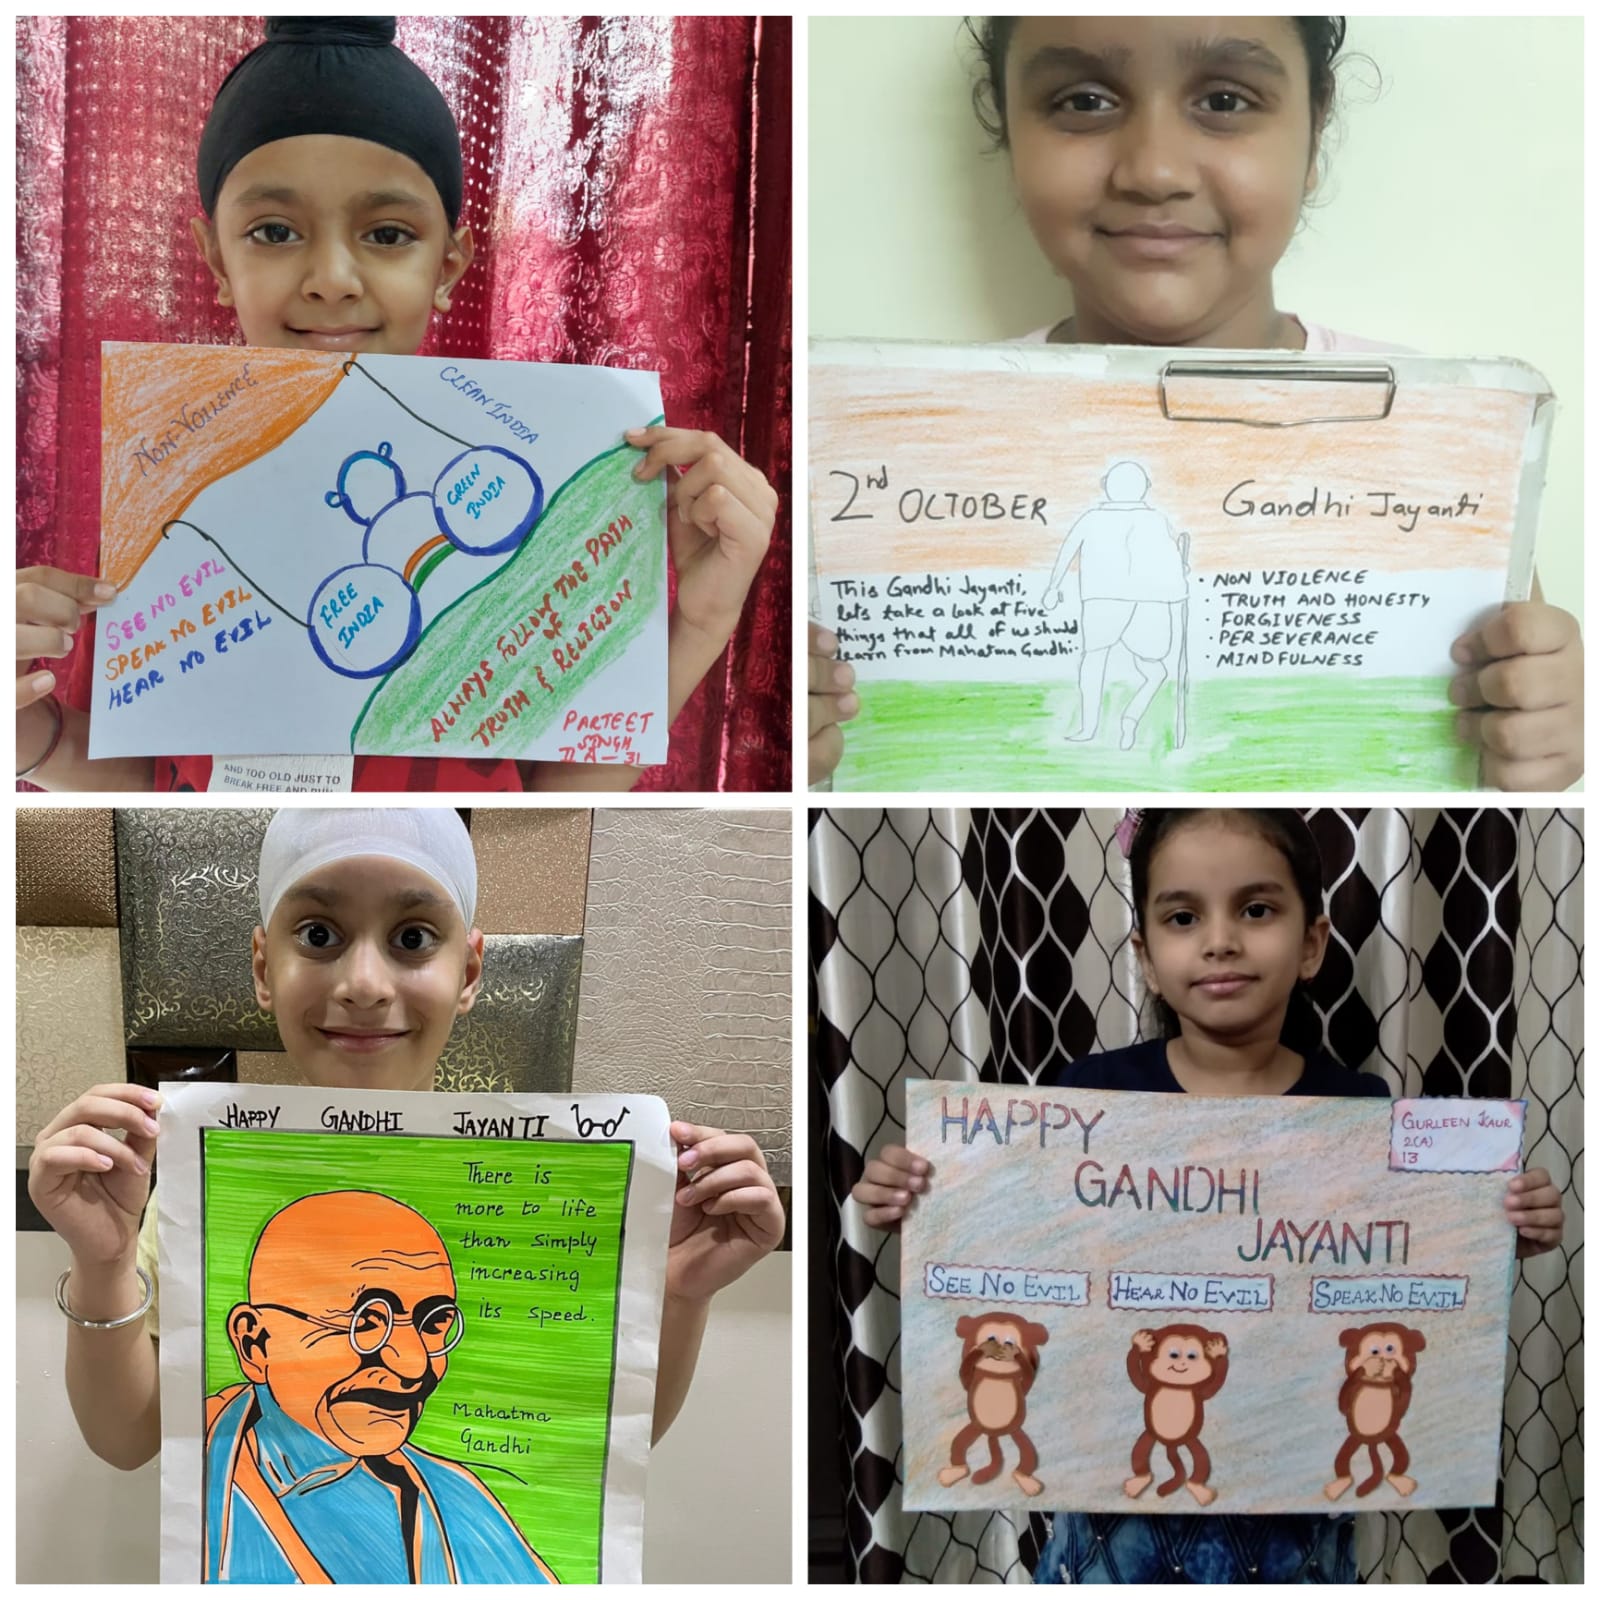 NON-VOILENCE
CLEAN INDIA
GREEN
INDIA
FREE
INDIA
SEE NO EVIL
SPEAK NO EVIL
HEAR NO EVIL
ALWAYS FOLLOW THE PATH
OF
TRUTH & RELIGION
PARTEET
SINGH
II A - 31
AND TOO OLD JUST TO
BREAK FREE AND RUN
2nd OCTOBER
Gandhi Jayanti
This Gandhi Jayanti,
lets take a look at five
things that all of us should
learn from Mahatma Gandhi.
• NON VIOLENCE
• TRUTH AND HONESTY
• FORGIVENESS
• PERSEVERANCE
• MINDFULNESS
HAPPY GANDHI JAYANTI
There is
more to life
than simply
increasing
its speed.
Mahatma
Gandhi
HAPPY
GANDHI
JAYANTI
GURLEEN KAUR
2(A)
13
SEE NO EVIL
HEAR NO EVIL
SPEAK NO EVIL